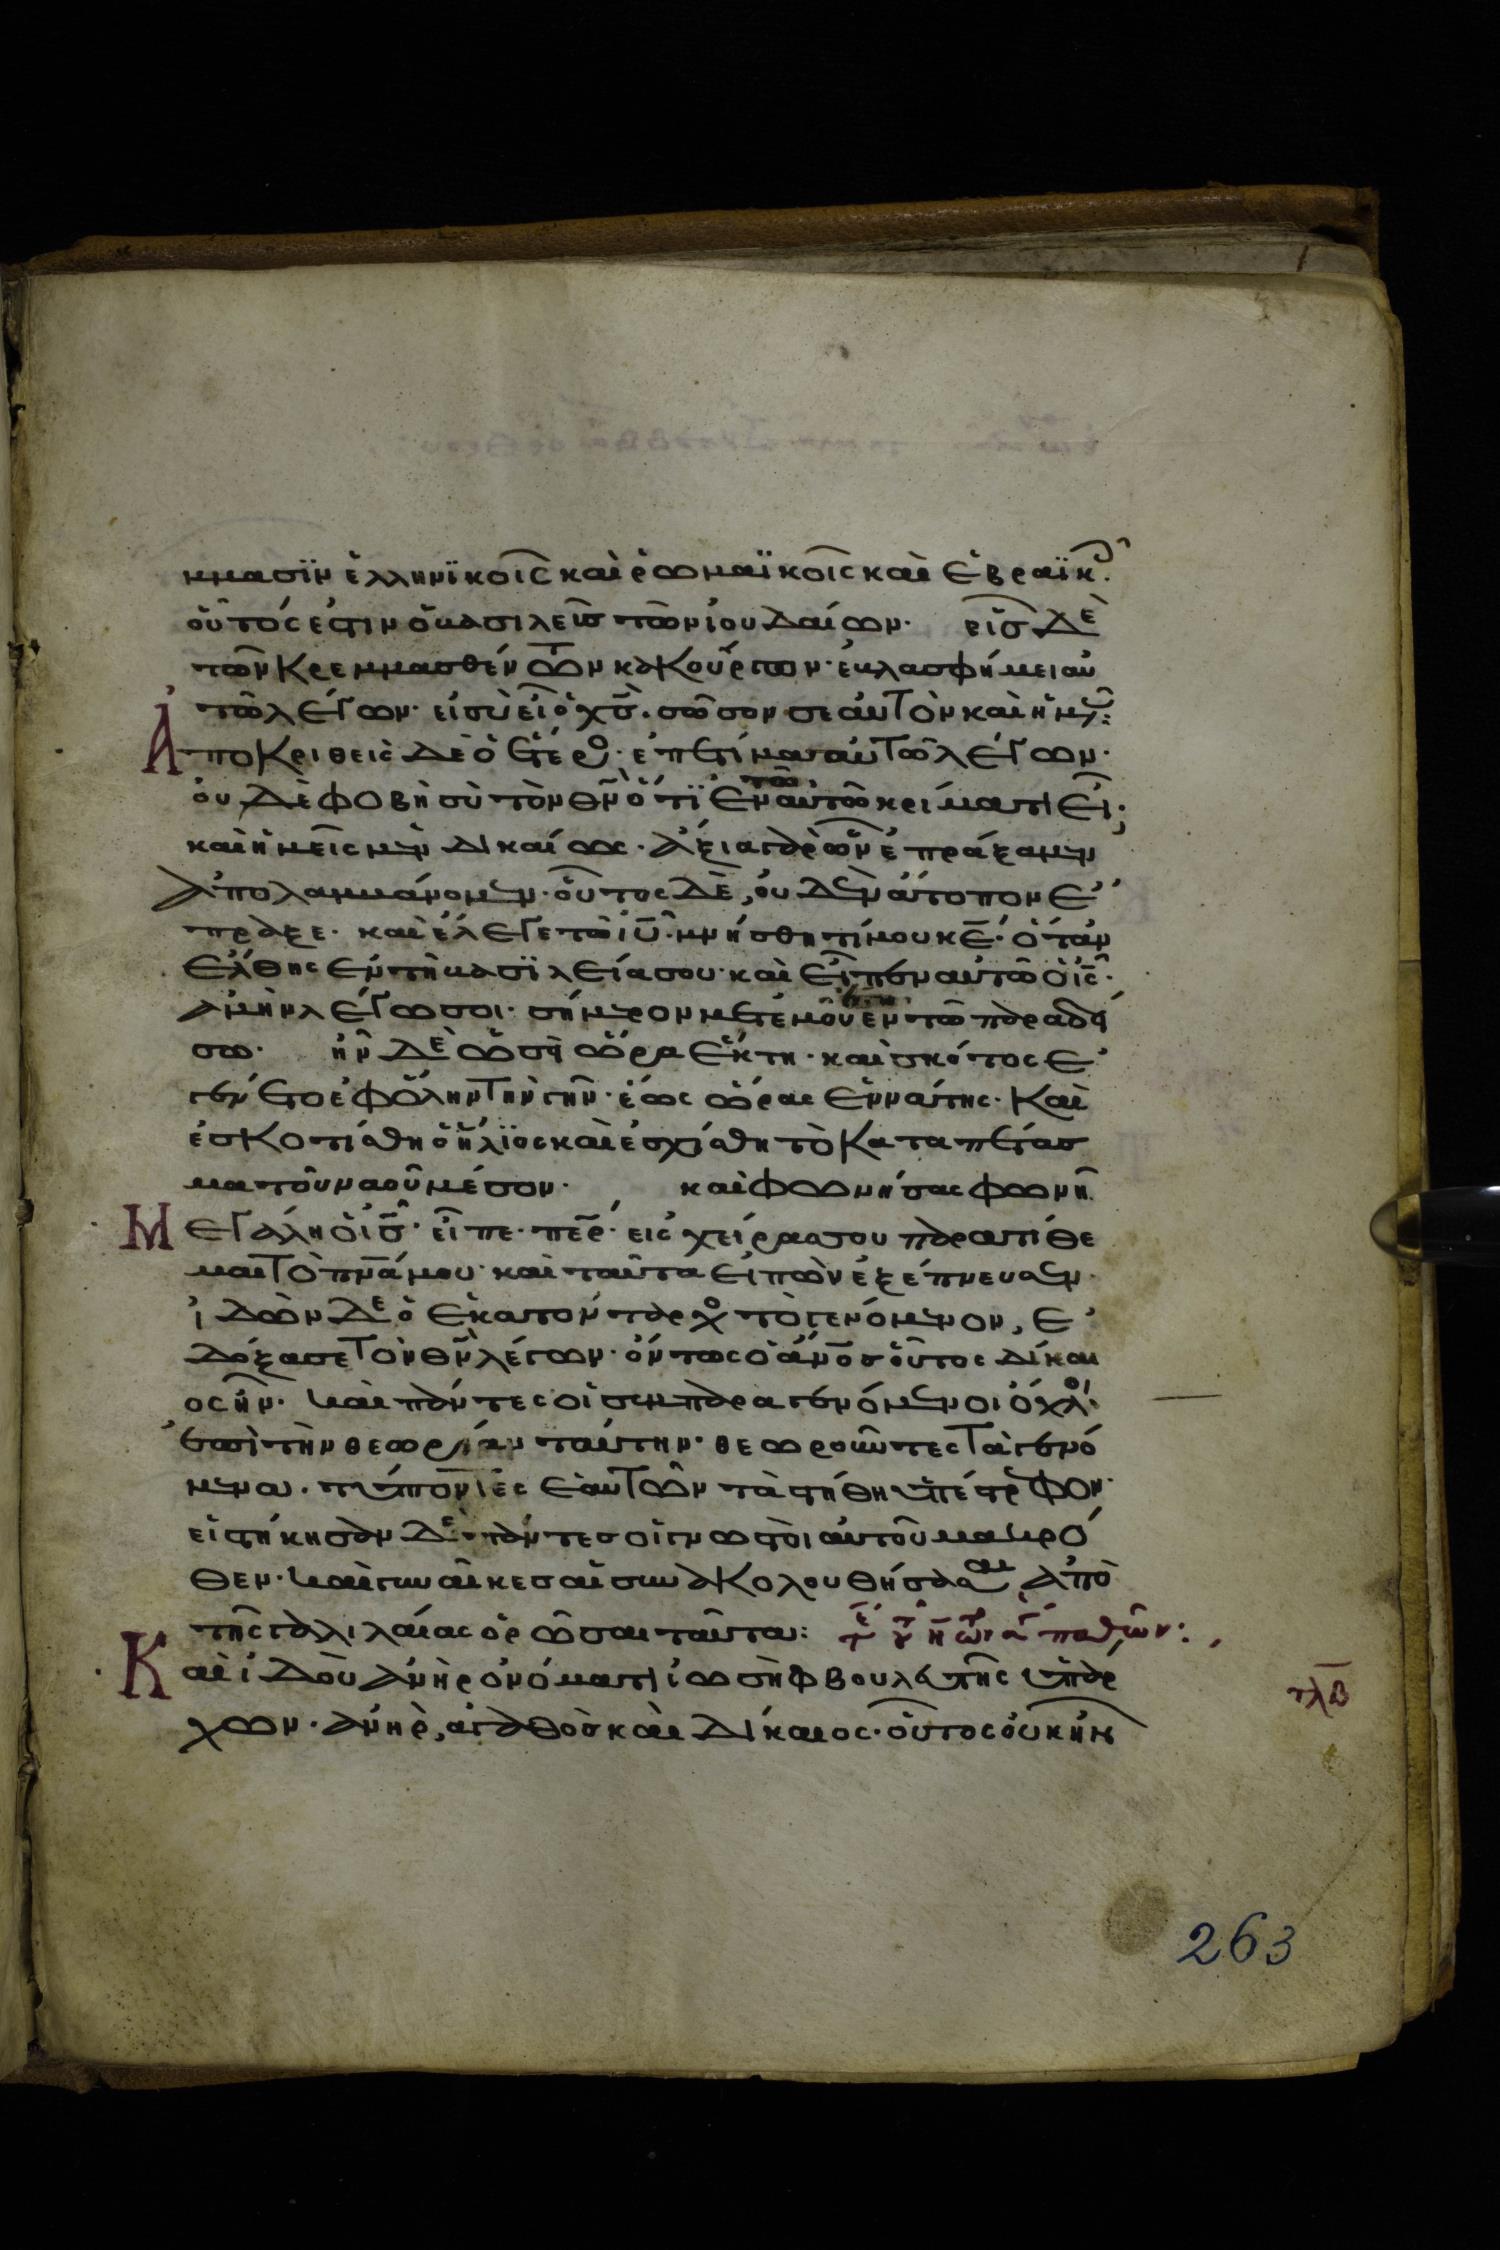 μμασϊν ἑλληνϊκοῖς καὶ ῥωμαϊκοῖς καὶ ἑβραϊκ(οῖς).
οὗτός ἐστιν ὁ βασιλεῦσ τῶν ἰουδαίων· εἷσ δὲ
τῶν κρεμμασθέντων κακούργων· ἐβλασφήμει αὐ
τῶ λέγων· εἰ σὺ εἶ ὁ χ̅σ̅. σῶσον σεαυτὸν καὶ ἡμᾶ(ς):
Ἀποκριθεὶς δὲ ὁ ἕτερο(ς)· ἐπετίμα αὐτῶ λέγων·
οὐδὲ φοβῆ σὺ τὸν θ̅ν̅ ὅτϊ ἐν τῶ αὐτῶ κρίματι εἶ·
καὶ ἡμεῖς μὲν δικαίως· ἄξια γὰρ ὧν ἐπράξαμεν
ἀπολαμβάνομεν· οὗτος δὲ, οὐδὲν ἄτοπον ἔ
πραξε· καὶ ἔλεγε τῶ ι̅υ̅· μνήσθητί μου κ̅ε̅· ὅταν
ἔλθης ἐν τῆ βασϊλεία σου· καὶ εἶπεν αὐτῶ ὁ ι̅ς̅·
ἀμὴν λέγω σοι· σήμερον μετ' ἐμοῦ ἐν τῶ παραδεί
σω· ἦν δὲ ὡσεὶ ὥρα ἕκτη· καὶ σκότος ἐ
γένετο ἐφ' ὅλην τὴν γῆν· ἕως ὥρας ἐννάτης· καὶ
ἐσκοτίσθη ὁ ἥλϊος καὶ ἐσχίσθη τὸ καταπέτασ
μα τοῦ ναοῦ μέσον· καὶ φωνήσας φωνῆ
Μεγάλη ὁ ι̅σ̅· εἶπε· π̅ε̅ρ̅· εἰς χείρας σου παρατίθε
μαι τὸ π̅ν̅ά̅ μου· καὶ ταῦτα εἰπὼν ἐξέπνευσεν·
ἰδὼν δὲ ὁ ἑκατόνταρχο(ς) τὸ γενόμενον, ἐ
δόξασε τὸν θ̅ν̅ λέγων· ὄντως ὁ ἄ̅ν̅ο̅σ̅ οὗτος δίκαι
ος ἦν· καὶ πάντες οἱ συμπαραγενόμενοι ὄχλοι
ἐπὶ τὴν θεωρίαν ταύτην· θεωροῦντες τὰ γενό
μενα· τύπτοντες ἑαυτῶν τὰ στήθη ὑπέστρεφον·
εἱστήκησαν δὲ πάντεσ οἱ γνωστοὶ αὐτοῦ μακρό
θεν· καὶ γυναῖκεσ αἱ συνακολουθήσασαι ἀπὸ
τῆς γαλιλαίας ὁρῶσαι ταῦτα:
Καὶ ἰδοὺ ἀνὴρ ὀνόματι ἰωσὴφ βουλευτὴς ὑπάρ
χων· ἀνὴρ, ἀγαθὸσ καὶ δίκαιος· οὗτος οὐκ ἦν
τλβ
263